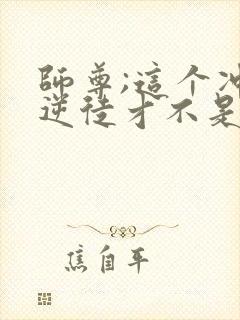 師尊;這个冲
逆徒才不是
焦自平